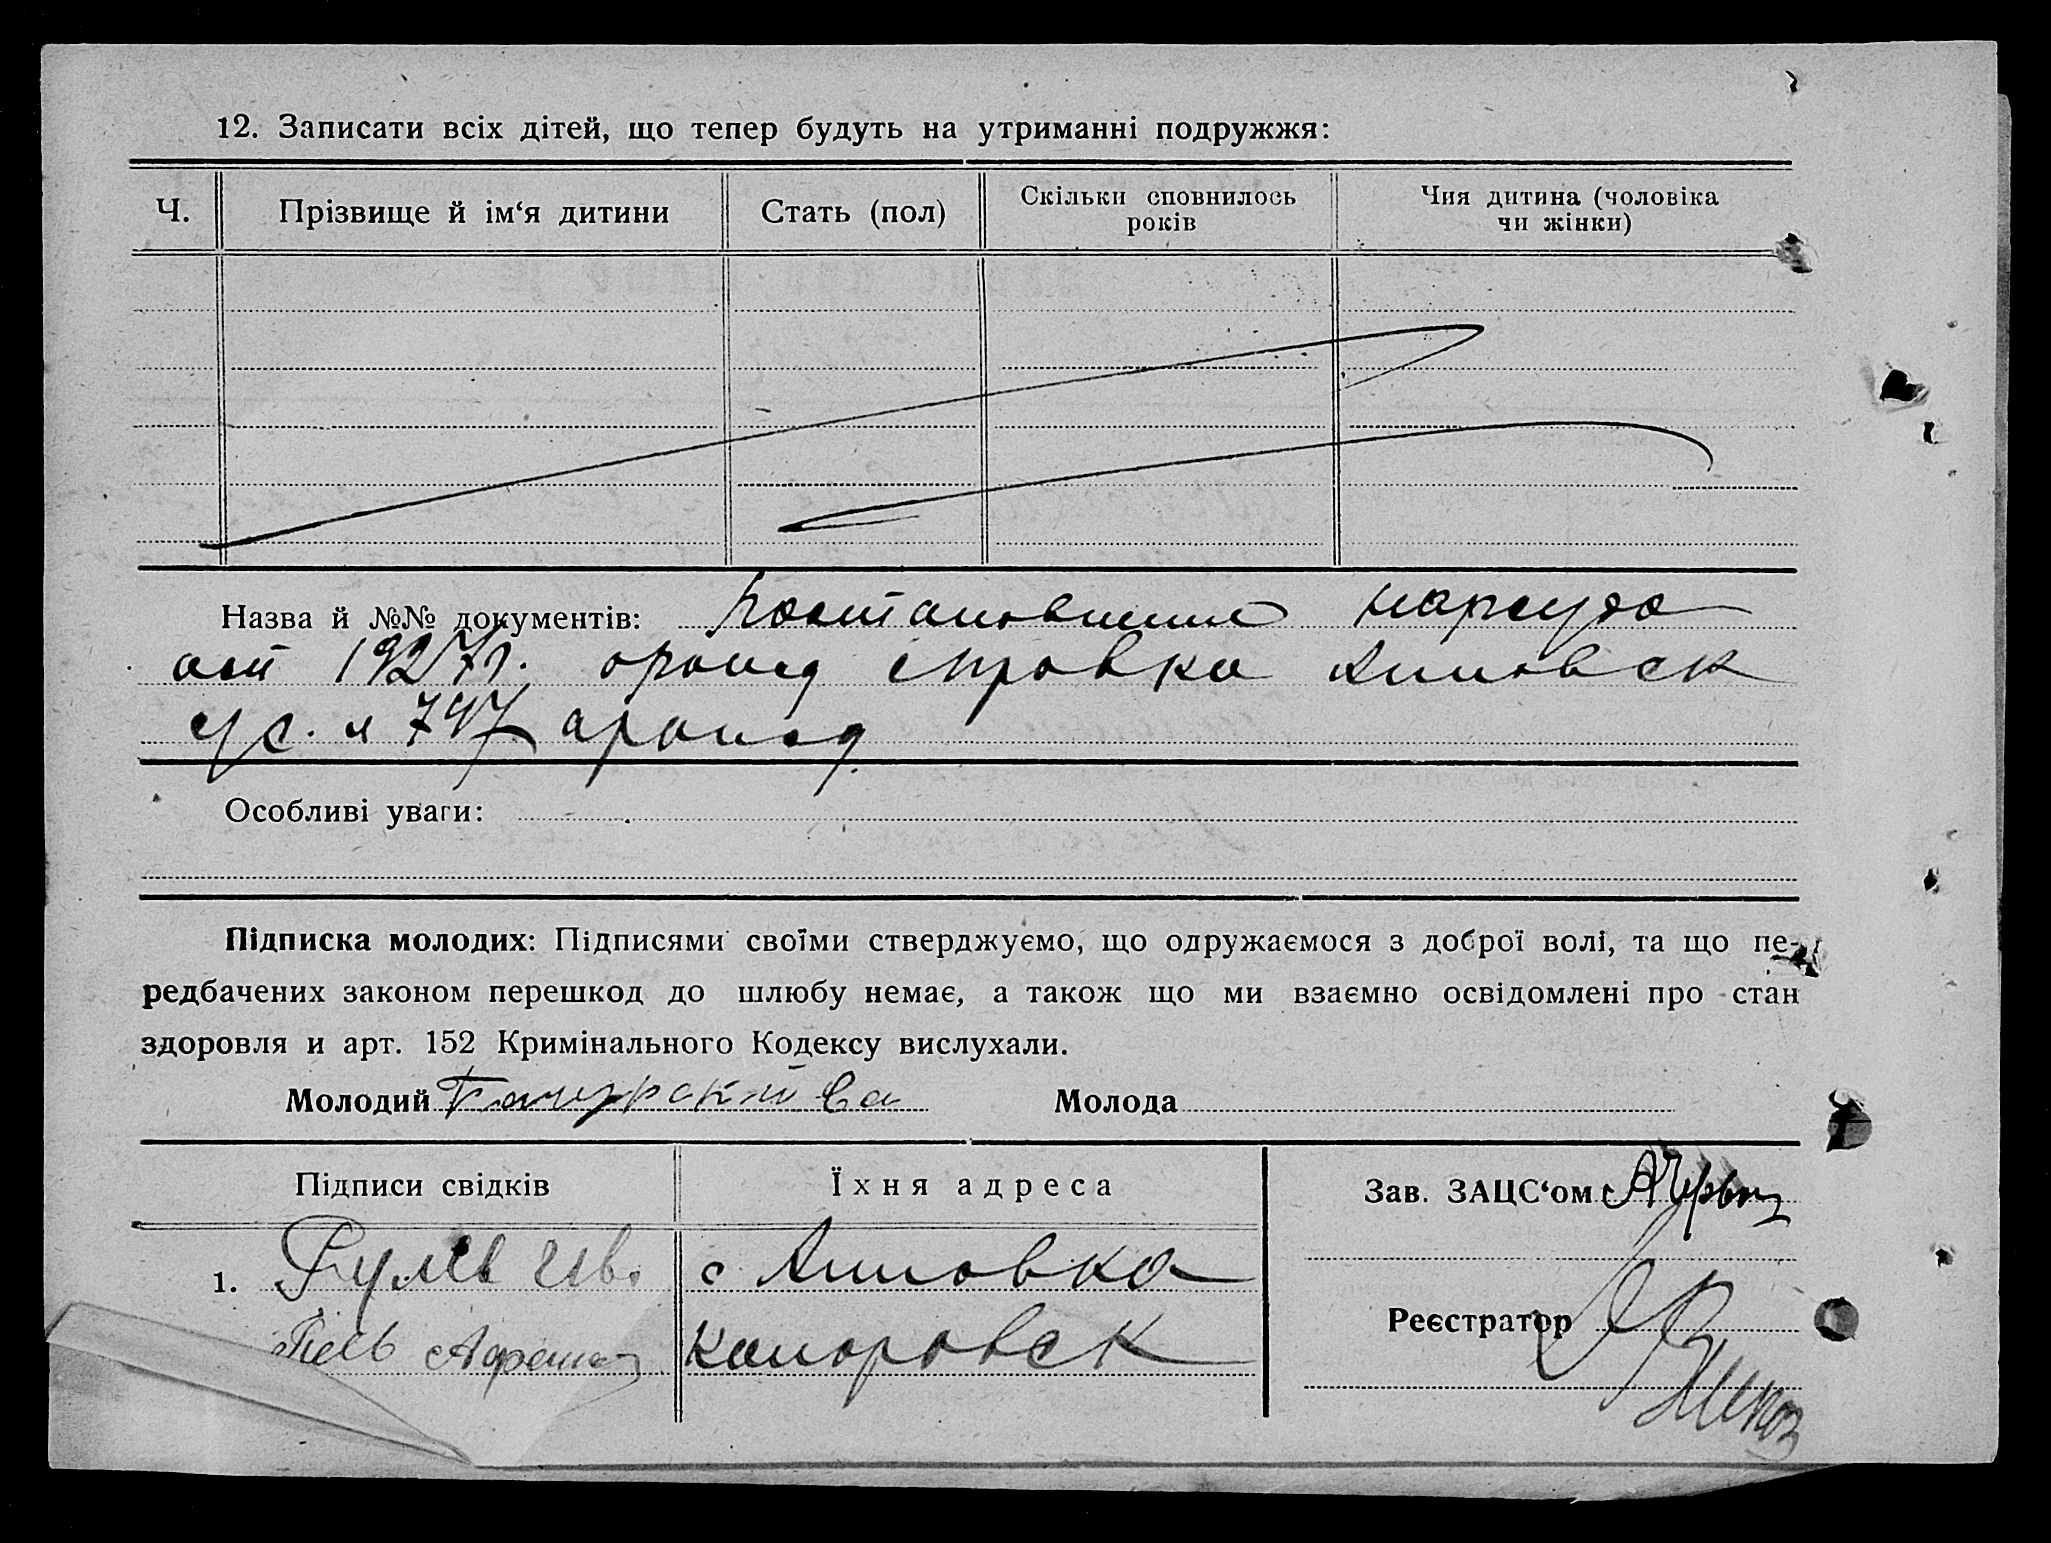 12. Записати всіх дітей, що тепер будуть на утриманні подружжя:
Ч.
Прізвище й ім‘я дитини
Стать (пол)
Скільки сповнилось років
Чия дитина (чоловіка чи жінки)
Назва й №№ документів: нарсуда
1927г. справка
с/с. 747
Особливі уваги:
Підписка молодих: Підписями своїми стверджуємо, що одружаємося з доброї волі, та що пе-
редбачених законом перешкод до шлюбу немає, а також що ми взаємно освідомлені про стан
здоровля и арт. 152 Кримінального Кодексу вислухали.
Молодий Молода
Підписи свідків
Їхня адреса
Зав. ЗАЦС‘ом
1. с
Реєстратор